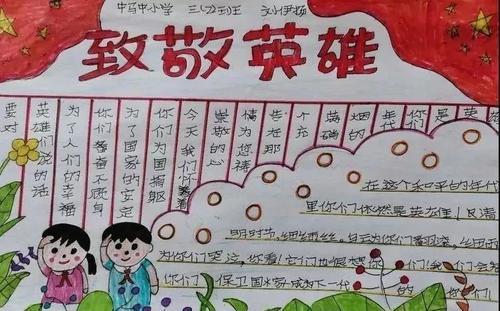 中马中小学 三(2)班
致敬英雄
要对
英雄们说的话
为了人们的幸福
你们奋不顾身
为了国家的安定
你们为国捐躯
今天我们怀着
崇敬的心
情为您祷
告在那
个充
硝烟的
年代
你们
是
英雄
在这个和平的年代
里你们依然是英雄！
明时节，为你们
为你们哭泣，你看！它们也很想你们！我们会
你们 保卫国家 成为下一代 的